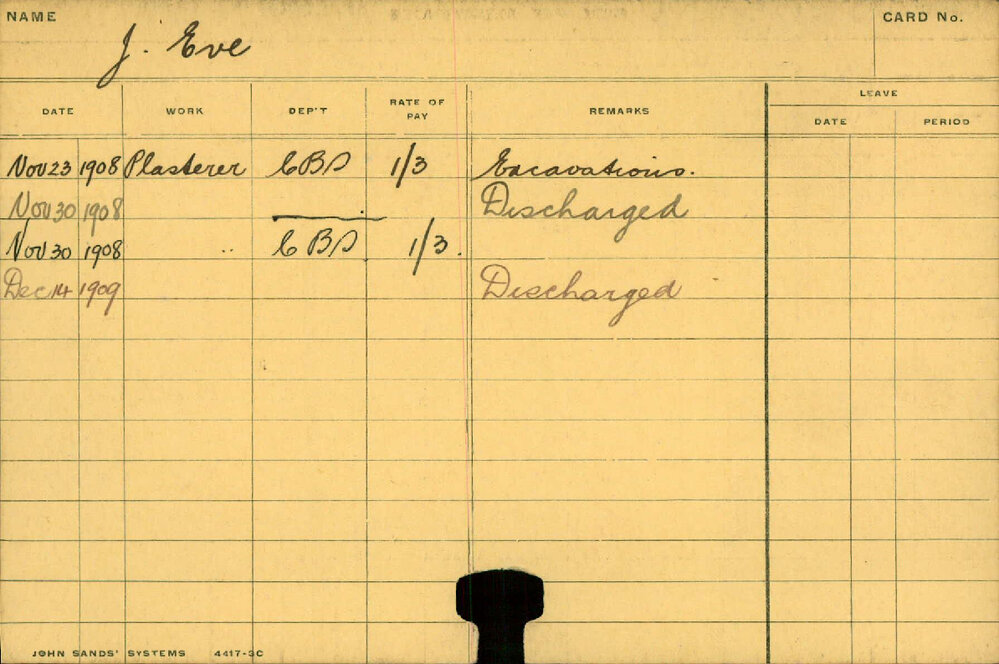 NAME J. Eve CARD No.
LEAVE
DATE WORK DEP'T RATE OF PAY REMARKS DATE PERIOD
Nov 23 1908 Plasterer CBS 1/3 Excavations.
Nov 30 1908 Discharged
Nov 30 1908 .. CBS 1/3.
Dec 14 1909 Discharged
JOHN SANDS' SYSTEMS 4417-3C